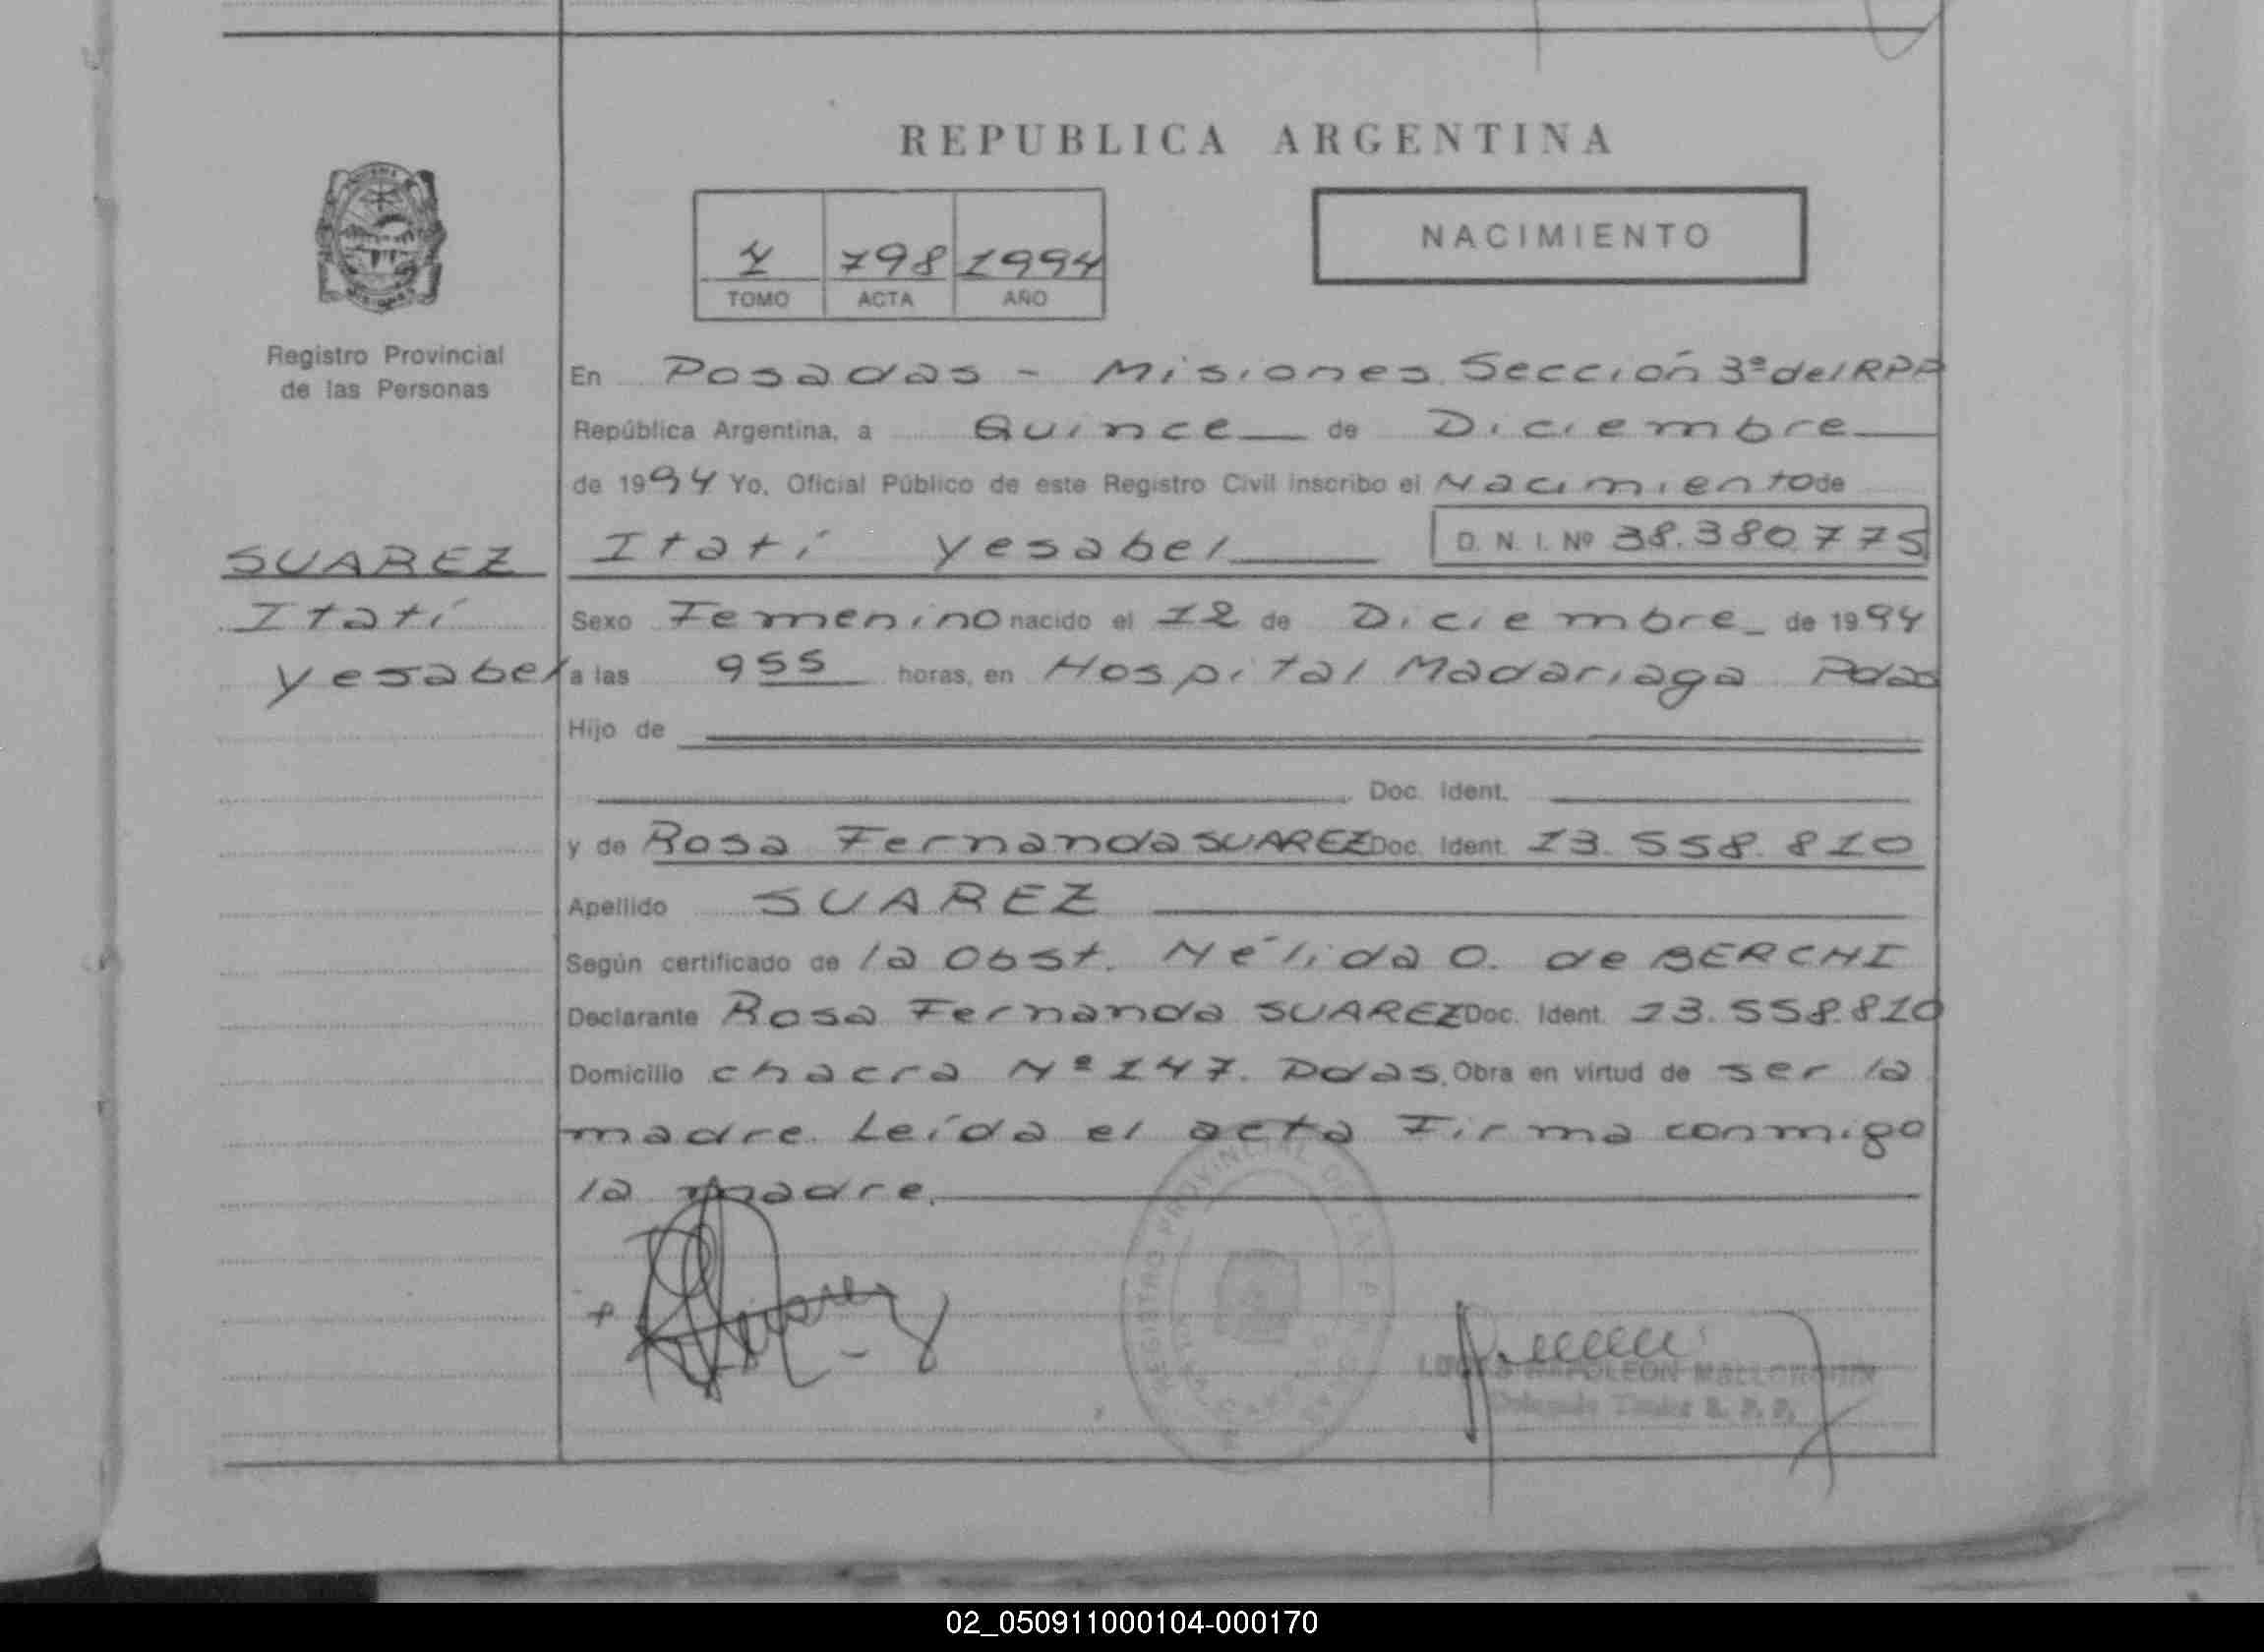 REPUBLICA ARGENTINA
798 1994
TOMO ACTA AÑO
NACIMIENTO
Registro Provincial
de las Personas
SUAREZ
Itatí
Yesabel
En Posadas - Misiones. Sección 3ª del RPP
República Argentina, a Quince de Diciembre
de 1994 Yo, Oficial Público de este Registro Civil inscribo el Nacimiento de
Itatí Yesabel D. N. I. Nº 38.380.775
Sexo Femenino nacido el 12 de Diciembre de 1994
a las 955 horas, en Hospital Madariaga Pdas
Hijo de
Doc. Ident.
y de Rosa Fernanda SUAREZ Doc. Ident. 13.558.810
Apellido SUAREZ
Según certificado de la Obst. Nélida O. de BERCHI
Declarante Rosa Fernanda SUAREZ Doc. Ident. 13.558.810
Domicilio chacra Nº 147. Pdas. Obra en virtud de ser la
madre. Leída el acta Firma conmigo
la madre.
REGISTRO PROVINCIAL DE LAS
NAPOLEON
R. P. P.
02_050911000104-000170